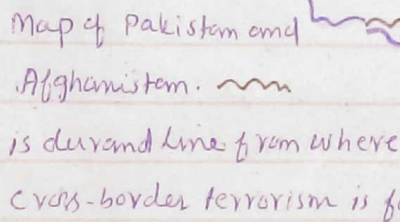 Map of Pakistan and
Afghanistan.
is durand line from where
cross-border terrorism is